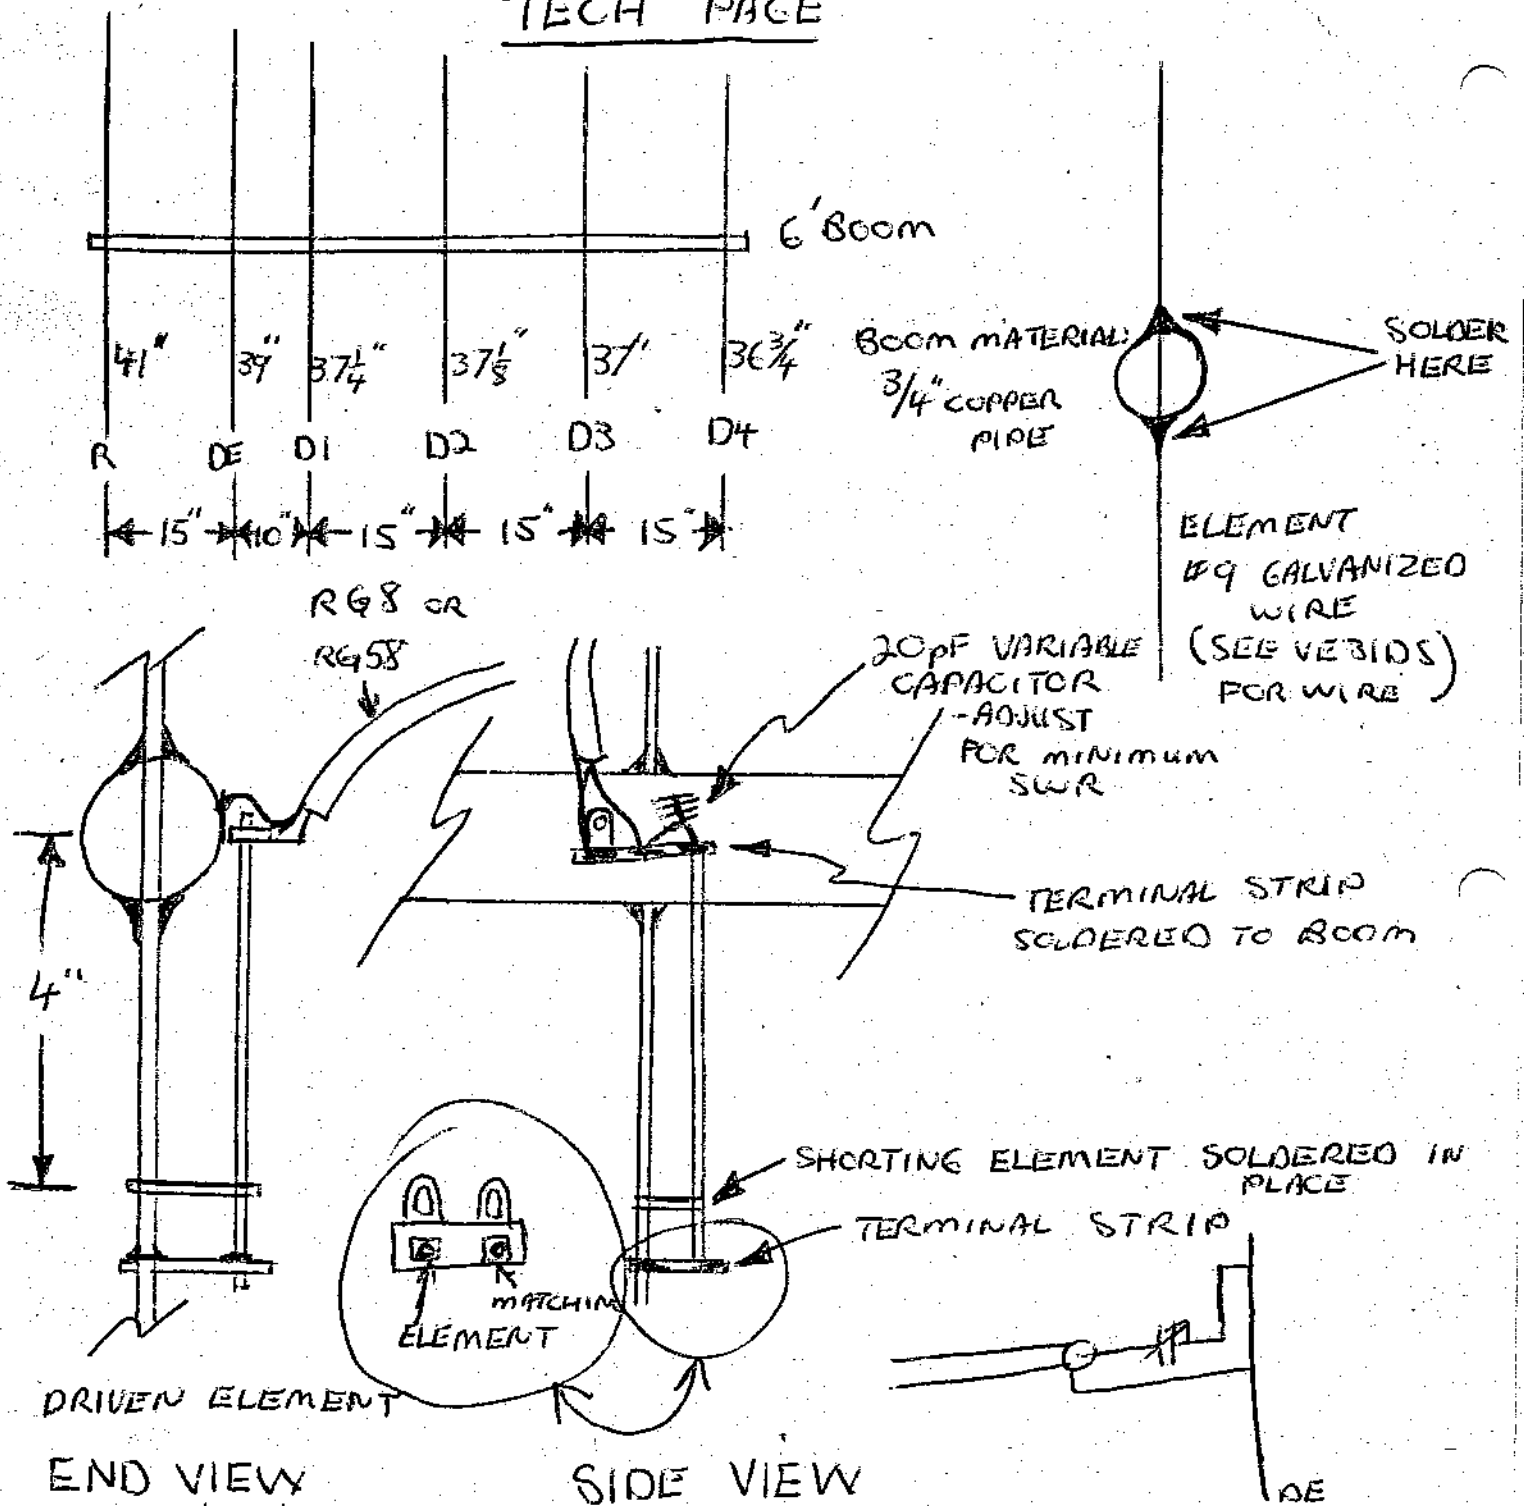 TECH PAGE
6' BOOM
41" 39" 37 1/4" 37 1/8" 37" 36 3/4"
R DE D1 D2 D3 D4
15" 10" 15" 15" 15"
BOOM MATERIAL:
3/4" COPPER
PIPE
SOLDER
HERE
ELEMENT
#9 GALVANIZED
WIRE
(SEE VE3IDS)
FOR WIRE
RG8 OR
RG58
20pF VARIABLE
CAPACITOR
-ADJUST
FOR MINIMUM
SWR
TERMINAL STRIP
SOLDERED TO BOOM
4"
SHORTING ELEMENT SOLDERED IN
PLACE
TERMINAL STRIP
MATCHIN
ELEMENT
DRIVEN ELEMENT
END VIEW
SIDE VIEW
DE